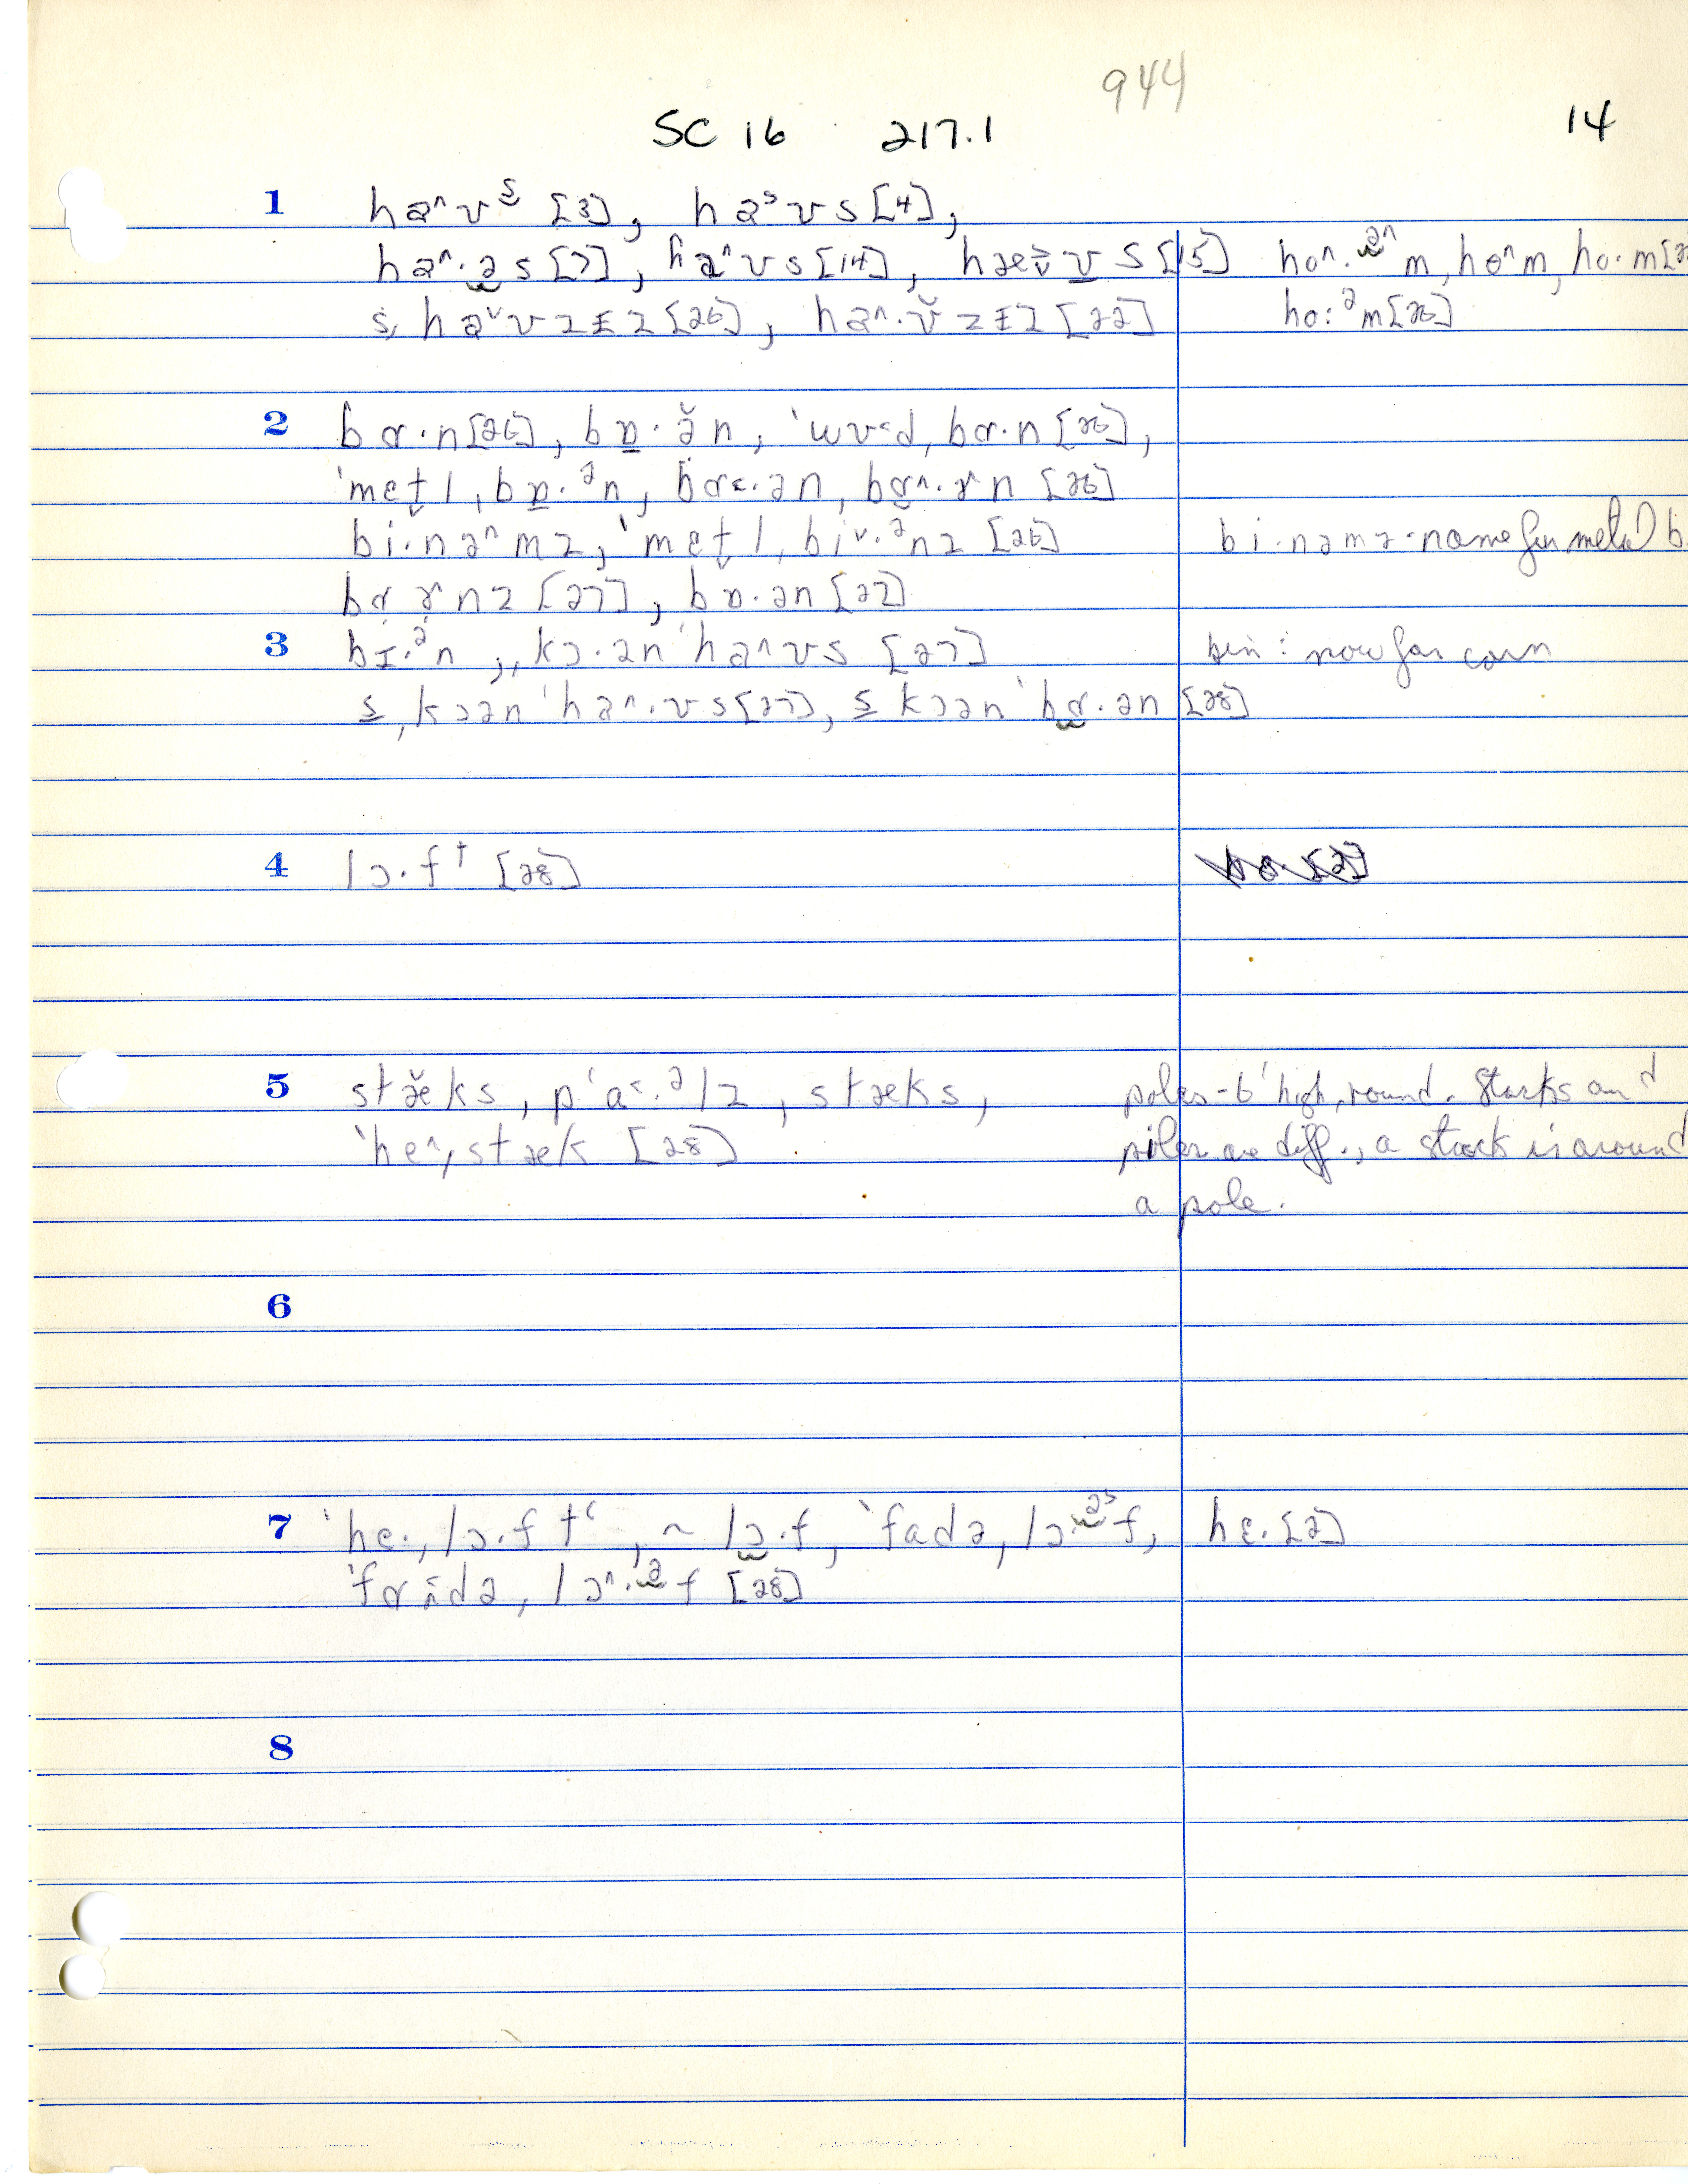 944
SC 16 217.1 14
1 haʌʊs [3], ha˃ʊs [4],
haʌ·əs [7], haʌʊs [14], hæʊs [15] hoʌ·əʌm, hoʌm, ho·m
s, haˇʊzɨz [26], haʌ·ʊ̆zɨz [22] ho:ᵊm [26]
2 bɑ·n [26], bɒ·ə̆n, ˈwʊ˂d, bɑ·n [26],
ˈmet̬l, bɒ·ᵊn, bɑ˂·ən, bɑʌ·ɤn [26]
bi·nəʌmz, ˈmet̬l, biˇ·ᵊnz [26] bi·nəmz - name for metal b
bɑɤnz [27], bɒ·ən [22]
3 bɪ·ᵊn ;, kɔ·ən ˈhaʌʊs [27] bin: now for corn
s, kɔən ˈhaʌ·ʊs [27], s kɔən ˈbɑ·ən [28]
4 lɔ·ft [28]
5 stæ̆ks, pʻa˂·ᵊlz, stæks, poles - 6' high, round. Stacks and
ˈhe^, stæk [28] piles are diff., a stack is around
a pole.
6
7 ˈhe·, lɔ·ftʻ, ~ lɔ·f, ˈfadə, lɔ·ə˃f, hε· [2]
ˈfɑdə, lɔʌ·əf [28]
8